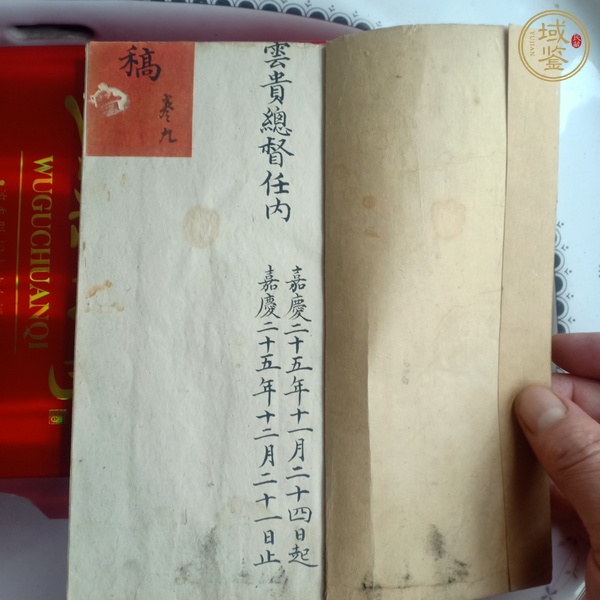 雲貴總督任内
嘉慶二十五年十一月二十四日起
嘉慶二十五年十二月二十一日止
稿
卷九
WUGUCHUANQI
域鉴
YUJIAN